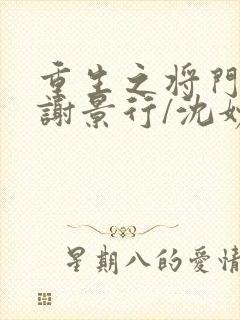 重生之将門
謝景行/沈
星期八的愛情